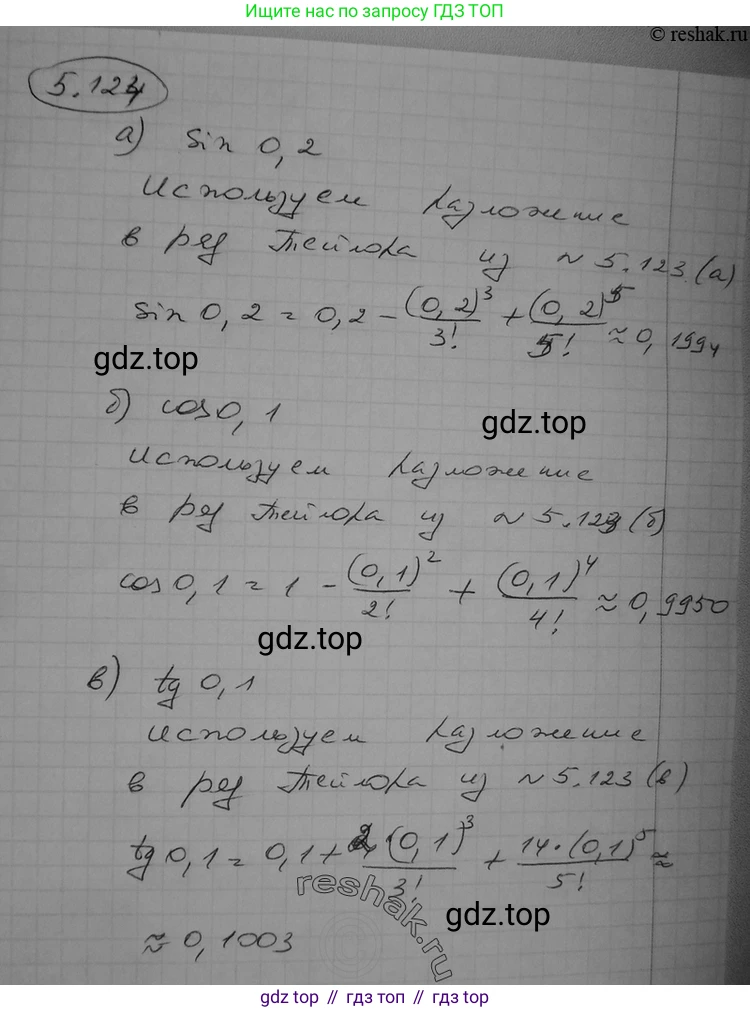 Ищите нас по запросу ГДЗ ТОП
© reshak.ru
5.124
а) sin 0,2
Используем разложение
в ряд Тейлора из ~ 5.123 (а)
sin 0,2 = 0,2 - (0,2)^3/3! + (0,2)^5/5! ≈ 0,1994
gdz.top
б) cos 0,1
gdz.top
Используем разложение
в ряд Тейлора из ~ 5.123 (б)
cos 0,1 = 1 - (0,1)^2/2! + (0,1)^4/4! ≈ 0,9950
gdz.top
в) tg 0,1
Используем разложение
в ряд Тейлора из ~ 5.123 (в)
tg 0,1 = 0,1 + 2·(0,1)^3/3! + 14·(0,1)^5/5! ≈
reshak.ru
gdz.top
≈ 0,1003
gdz.top // гдз топ // gdz.top